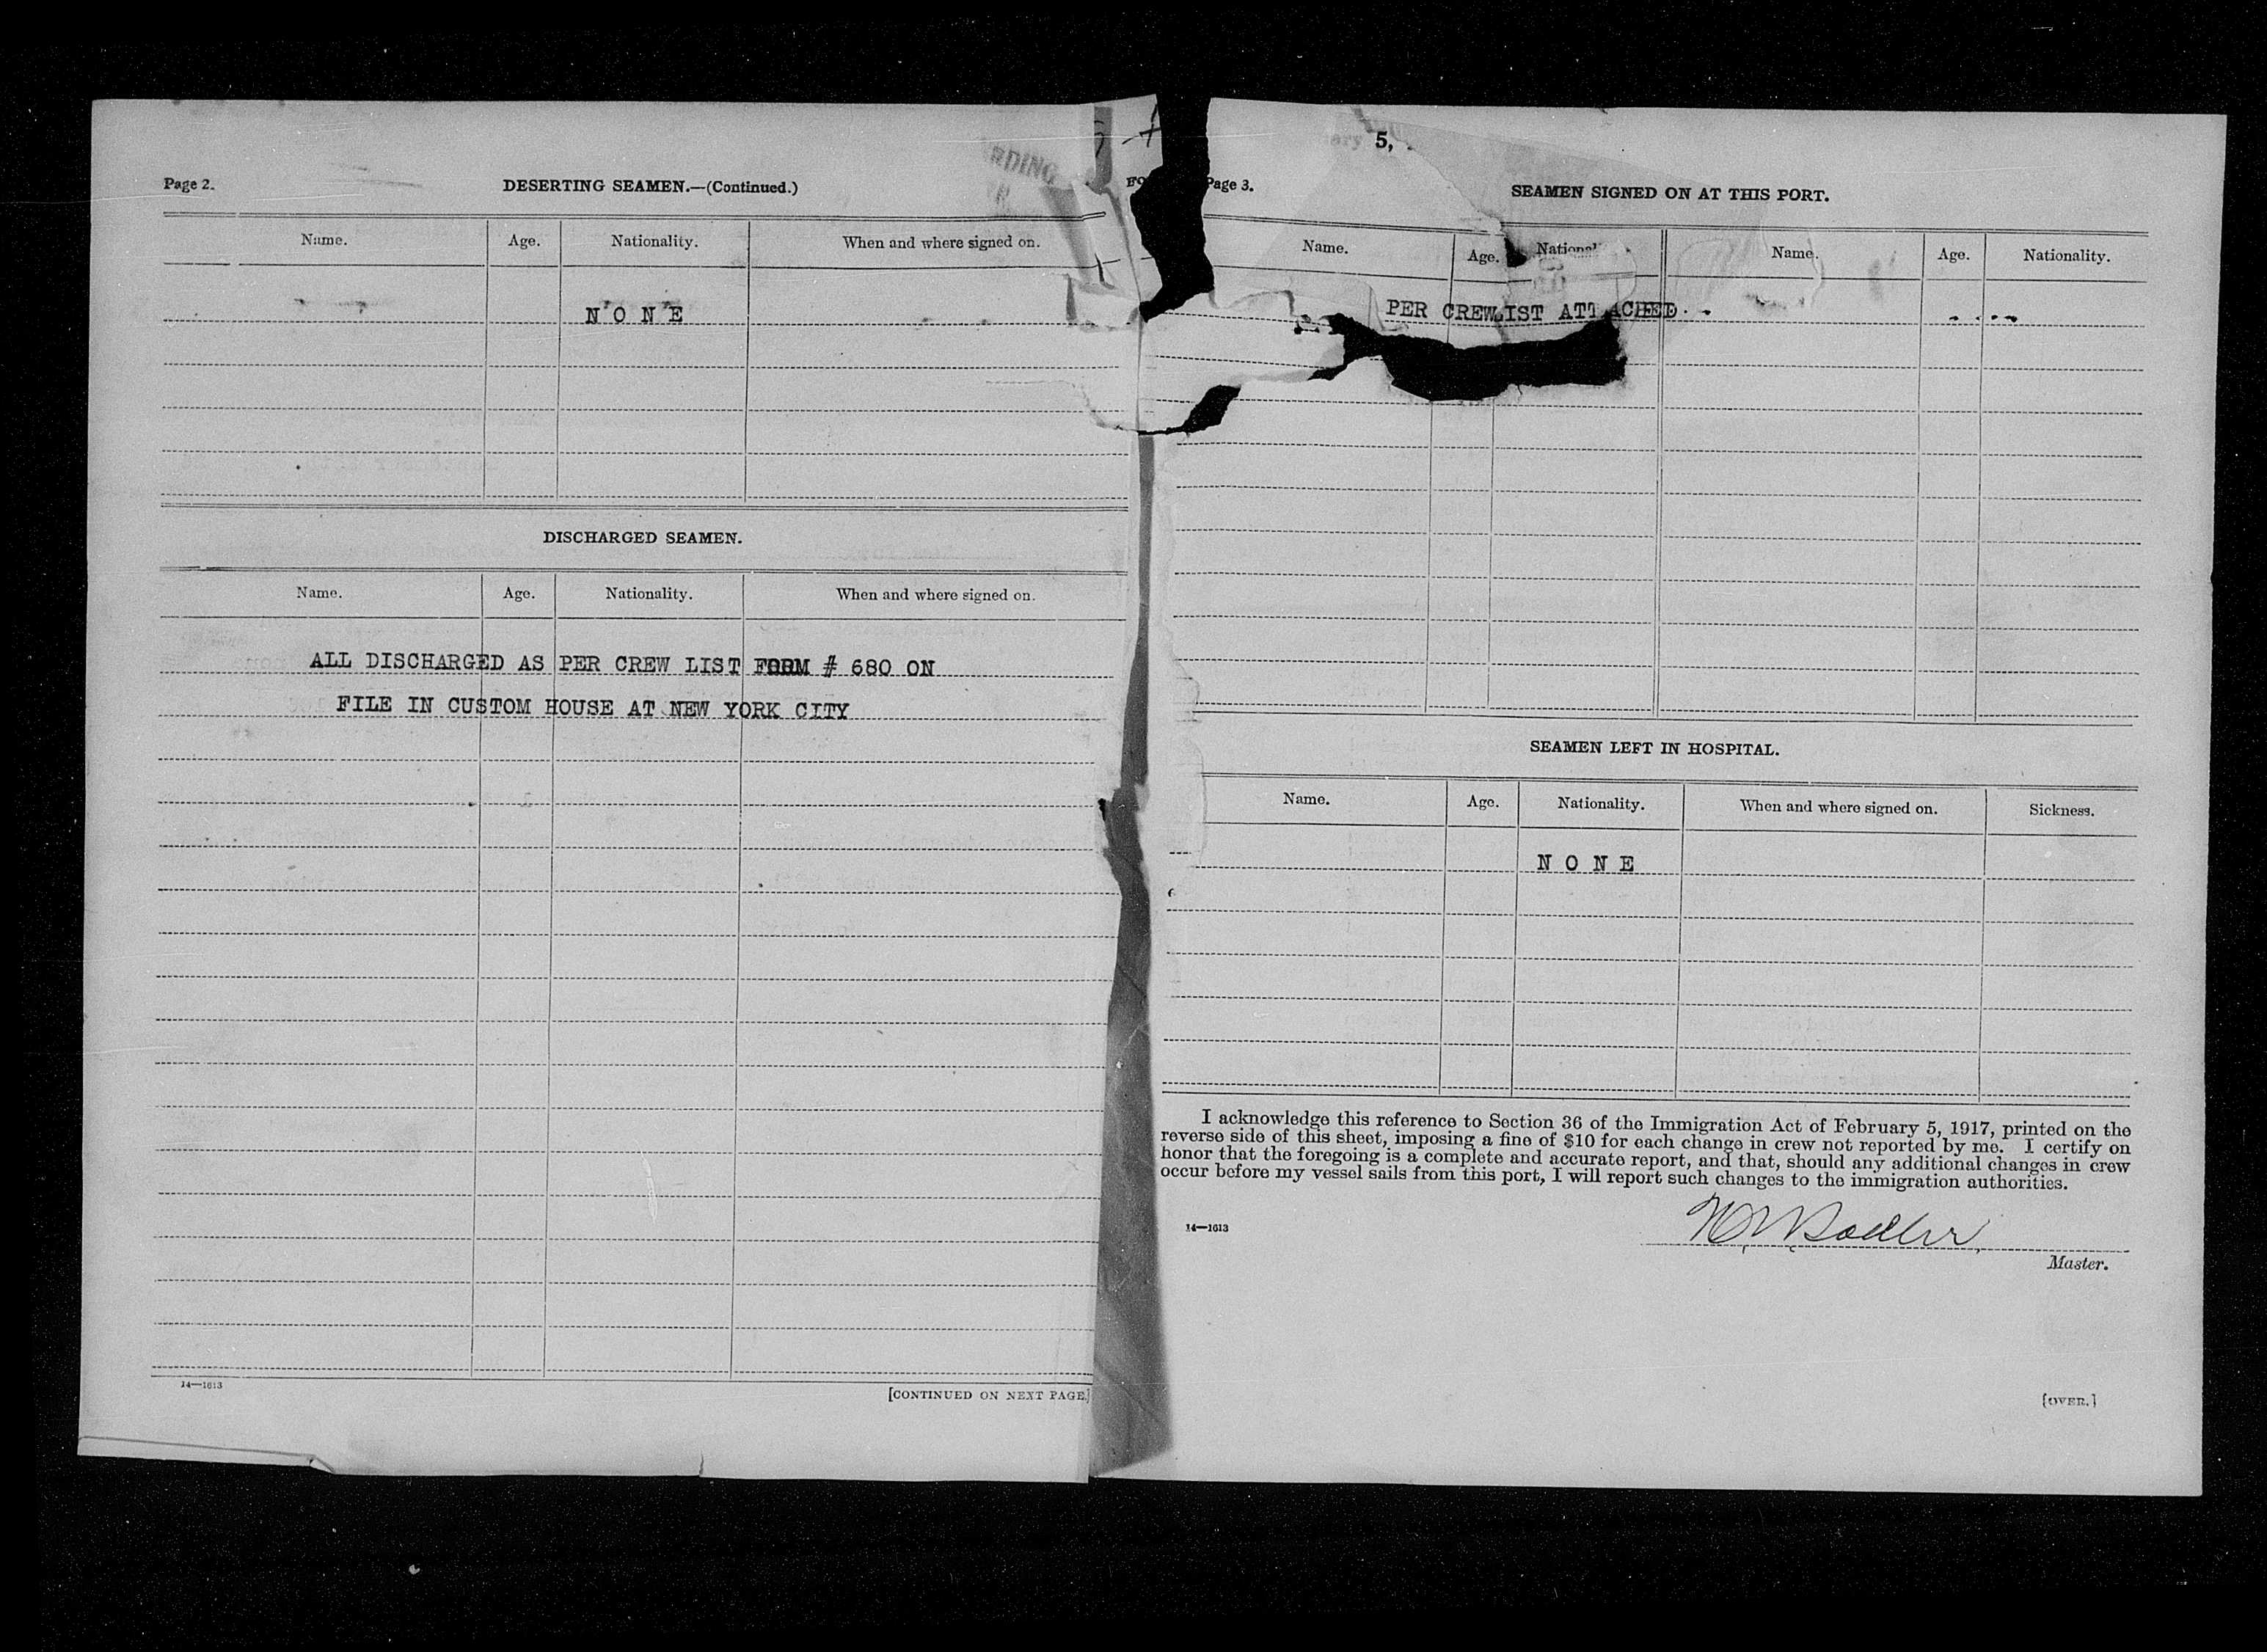 Page 2.
DESERTING SEAMEN.—(Continued.)
Name. Age. Nationality. When and where signed on.
N O N E
DISCHARGED SEAMEN.
Name. Age. Nationality. When and where signed on.
ALL DISCHARGED AS PER CREW LIST FORM # 680 ON
FILE IN CUSTOM HOUSE AT NEW YORK CITY
14—1613
[CONTINUED ON NEXT PAGE.]
RDING
5,
Page 3.
SEAMEN SIGNED ON AT THIS PORT.
Name. Age. National Name. Age. Nationality.
PER CREW LIST ATTACHED.
SEAMEN LEFT IN HOSPITAL.
Name. Age. Nationality. When and where signed on. Sickness.
N O N E
I acknowledge this reference to Section 36 of the Immigration Act of February 5, 1917, printed on the
reverse side of this sheet, imposing a fine of $10 for each change in crew not reported by me. I certify on
honor that the foregoing is a complete and accurate report, and that, should any additional changes in crew
occur before my vessel sails from this port, I will report such changes to the immigration authorities.
14—1613
Master.
[OVER.]